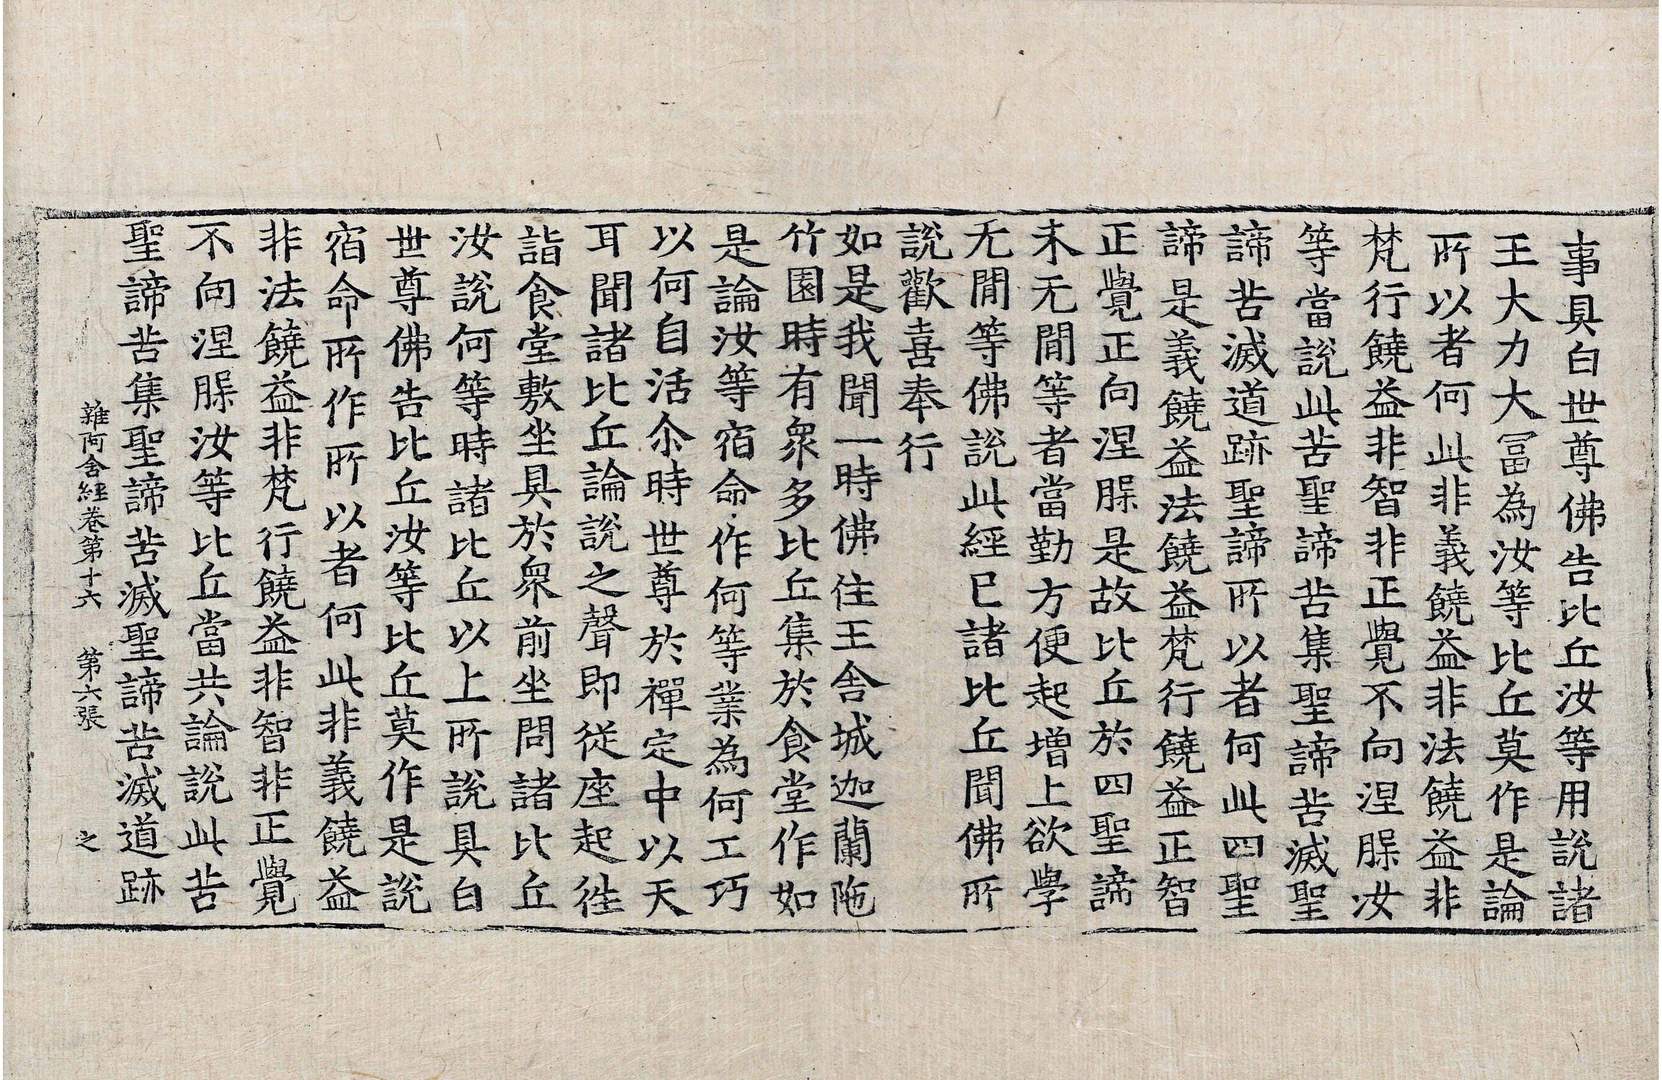 事具白世尊佛告比丘汝等用說諸
王大力大冨為汝等比丘莫作是論
所以者何此非義饒益非法饒益非
梵行饒益非智非正覺不向涅槃汝
等當說此苦聖諦苦集聖諦苦滅聖
諦苦滅道跡聖諦所以者何此四聖
諦是義饒益法饒益梵行饒益正智
正覺正向涅槃是故比丘於四聖諦
未无閒等者當勤方便起增上欲學
无閒等佛說此經已諸比丘聞佛所
說歡喜奉行
如是我聞一時佛住王舍城迦蘭陁
竹園時有衆多比丘集於食堂作如
是論汝等宿命作何等業為何工巧
以何自活尒時世尊於禪定中以天
耳聞諸比丘論說之聲即從座起往
詣食堂敷坐具於衆前坐問諸比丘
汝說何等時諸比丘以上所說具白
世尊佛告比丘汝等比丘莫作是說
宿命所作所以者何此非義饒益
非法饒益非梵行饒益非智非正覺
不向涅槃汝等比丘當共論說此苦
聖諦苦集聖諦苦滅聖諦苦滅道跡
雜阿含經卷第十六 第六張 之